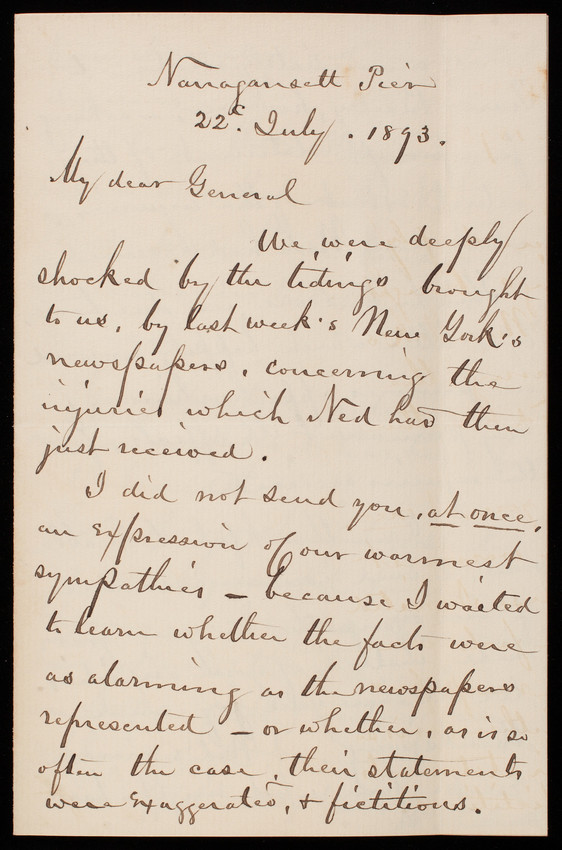 Narragansett Pier
22d. July. 1893.
My dear General
We were deeply
shocked by the tidings brought
to us, by last week's New York's
newspapers, concerning the
injuries which Ned had then
just received.
I did not send you, at once,
an expression of our warmest
sympathies – because I waited
to learn whether the facts were
as alarming as the newspapers
represented – or whether, as is so
often the case, their statements
were exaggerated, & fictitious.